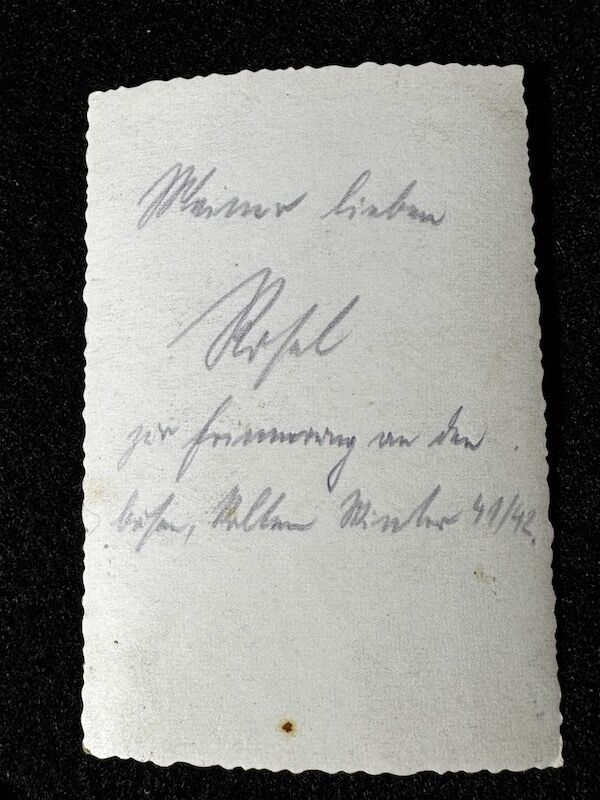 Meiner lieben
Rosel
zur Erinnerung an den
bösen, kalten Winter 41/42.